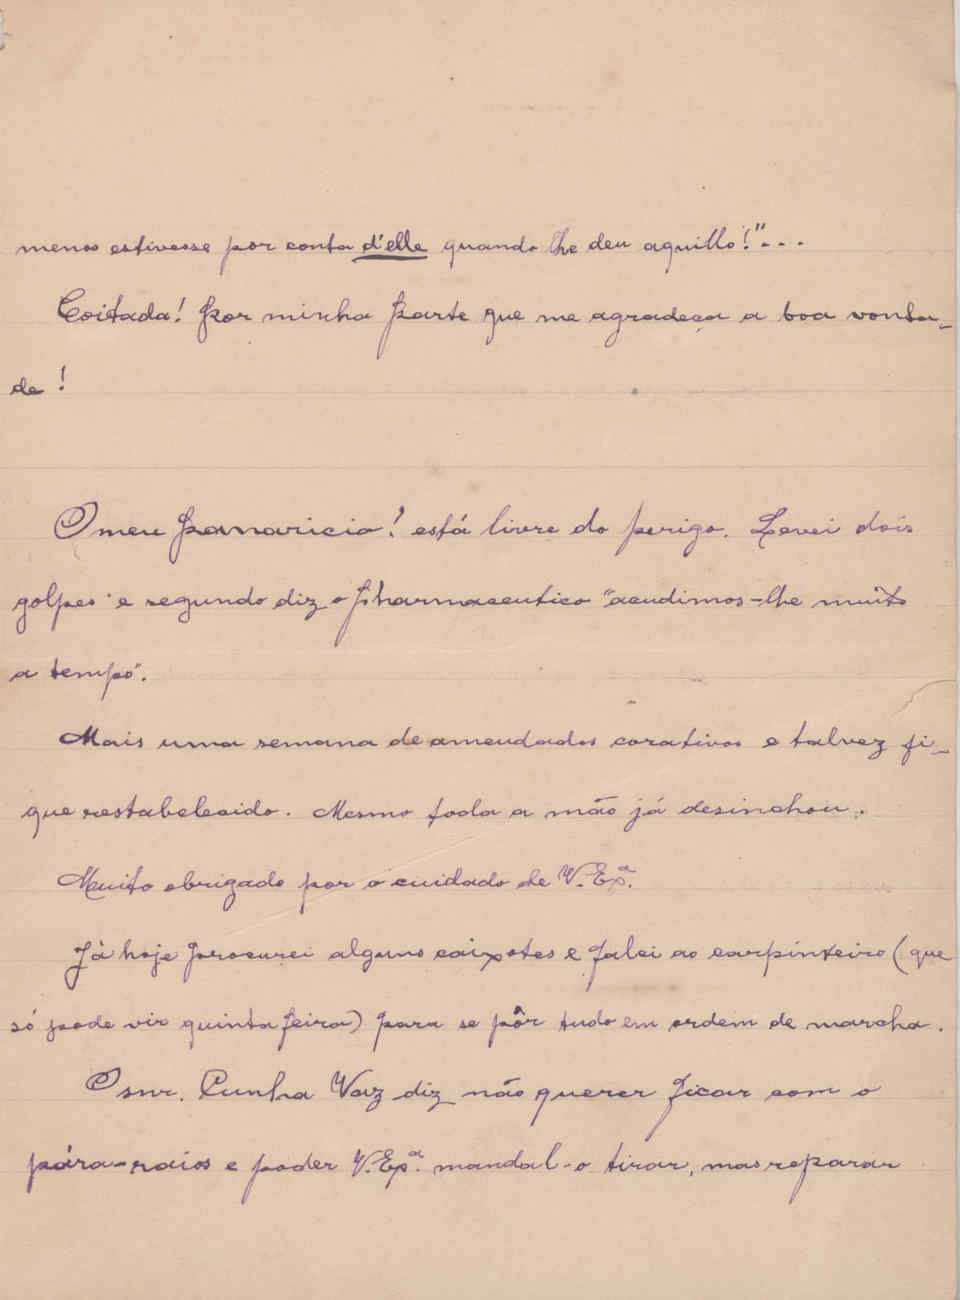 menos estivesse por conta d'elle quando lhe deu aquillo!"...
Coitada! Por minha parte que me agradeça a boa vonta-
de!
O meu panaricio! está livre do perigo. Levei dois
golpes e segundo diz o pharmaceutico "acudimos-lhe muito
a tempo".
Mais uma semana de ameudados corativos e talvez fi-
que restabelecido. Mesmo toda a mão já desinchou.
Muito obrigado por o cuidado de V. Exª.
Já hoje procurei alguns caixotes e falei ao carpinteiro (que
só pode vir quinta feira) para se pôr tudo em ordem de marcha.
O snr. Cunha Vaz diz não querer ficar com o
pára-raios e poder V. Exª. mandal-o tirar, mas reparar